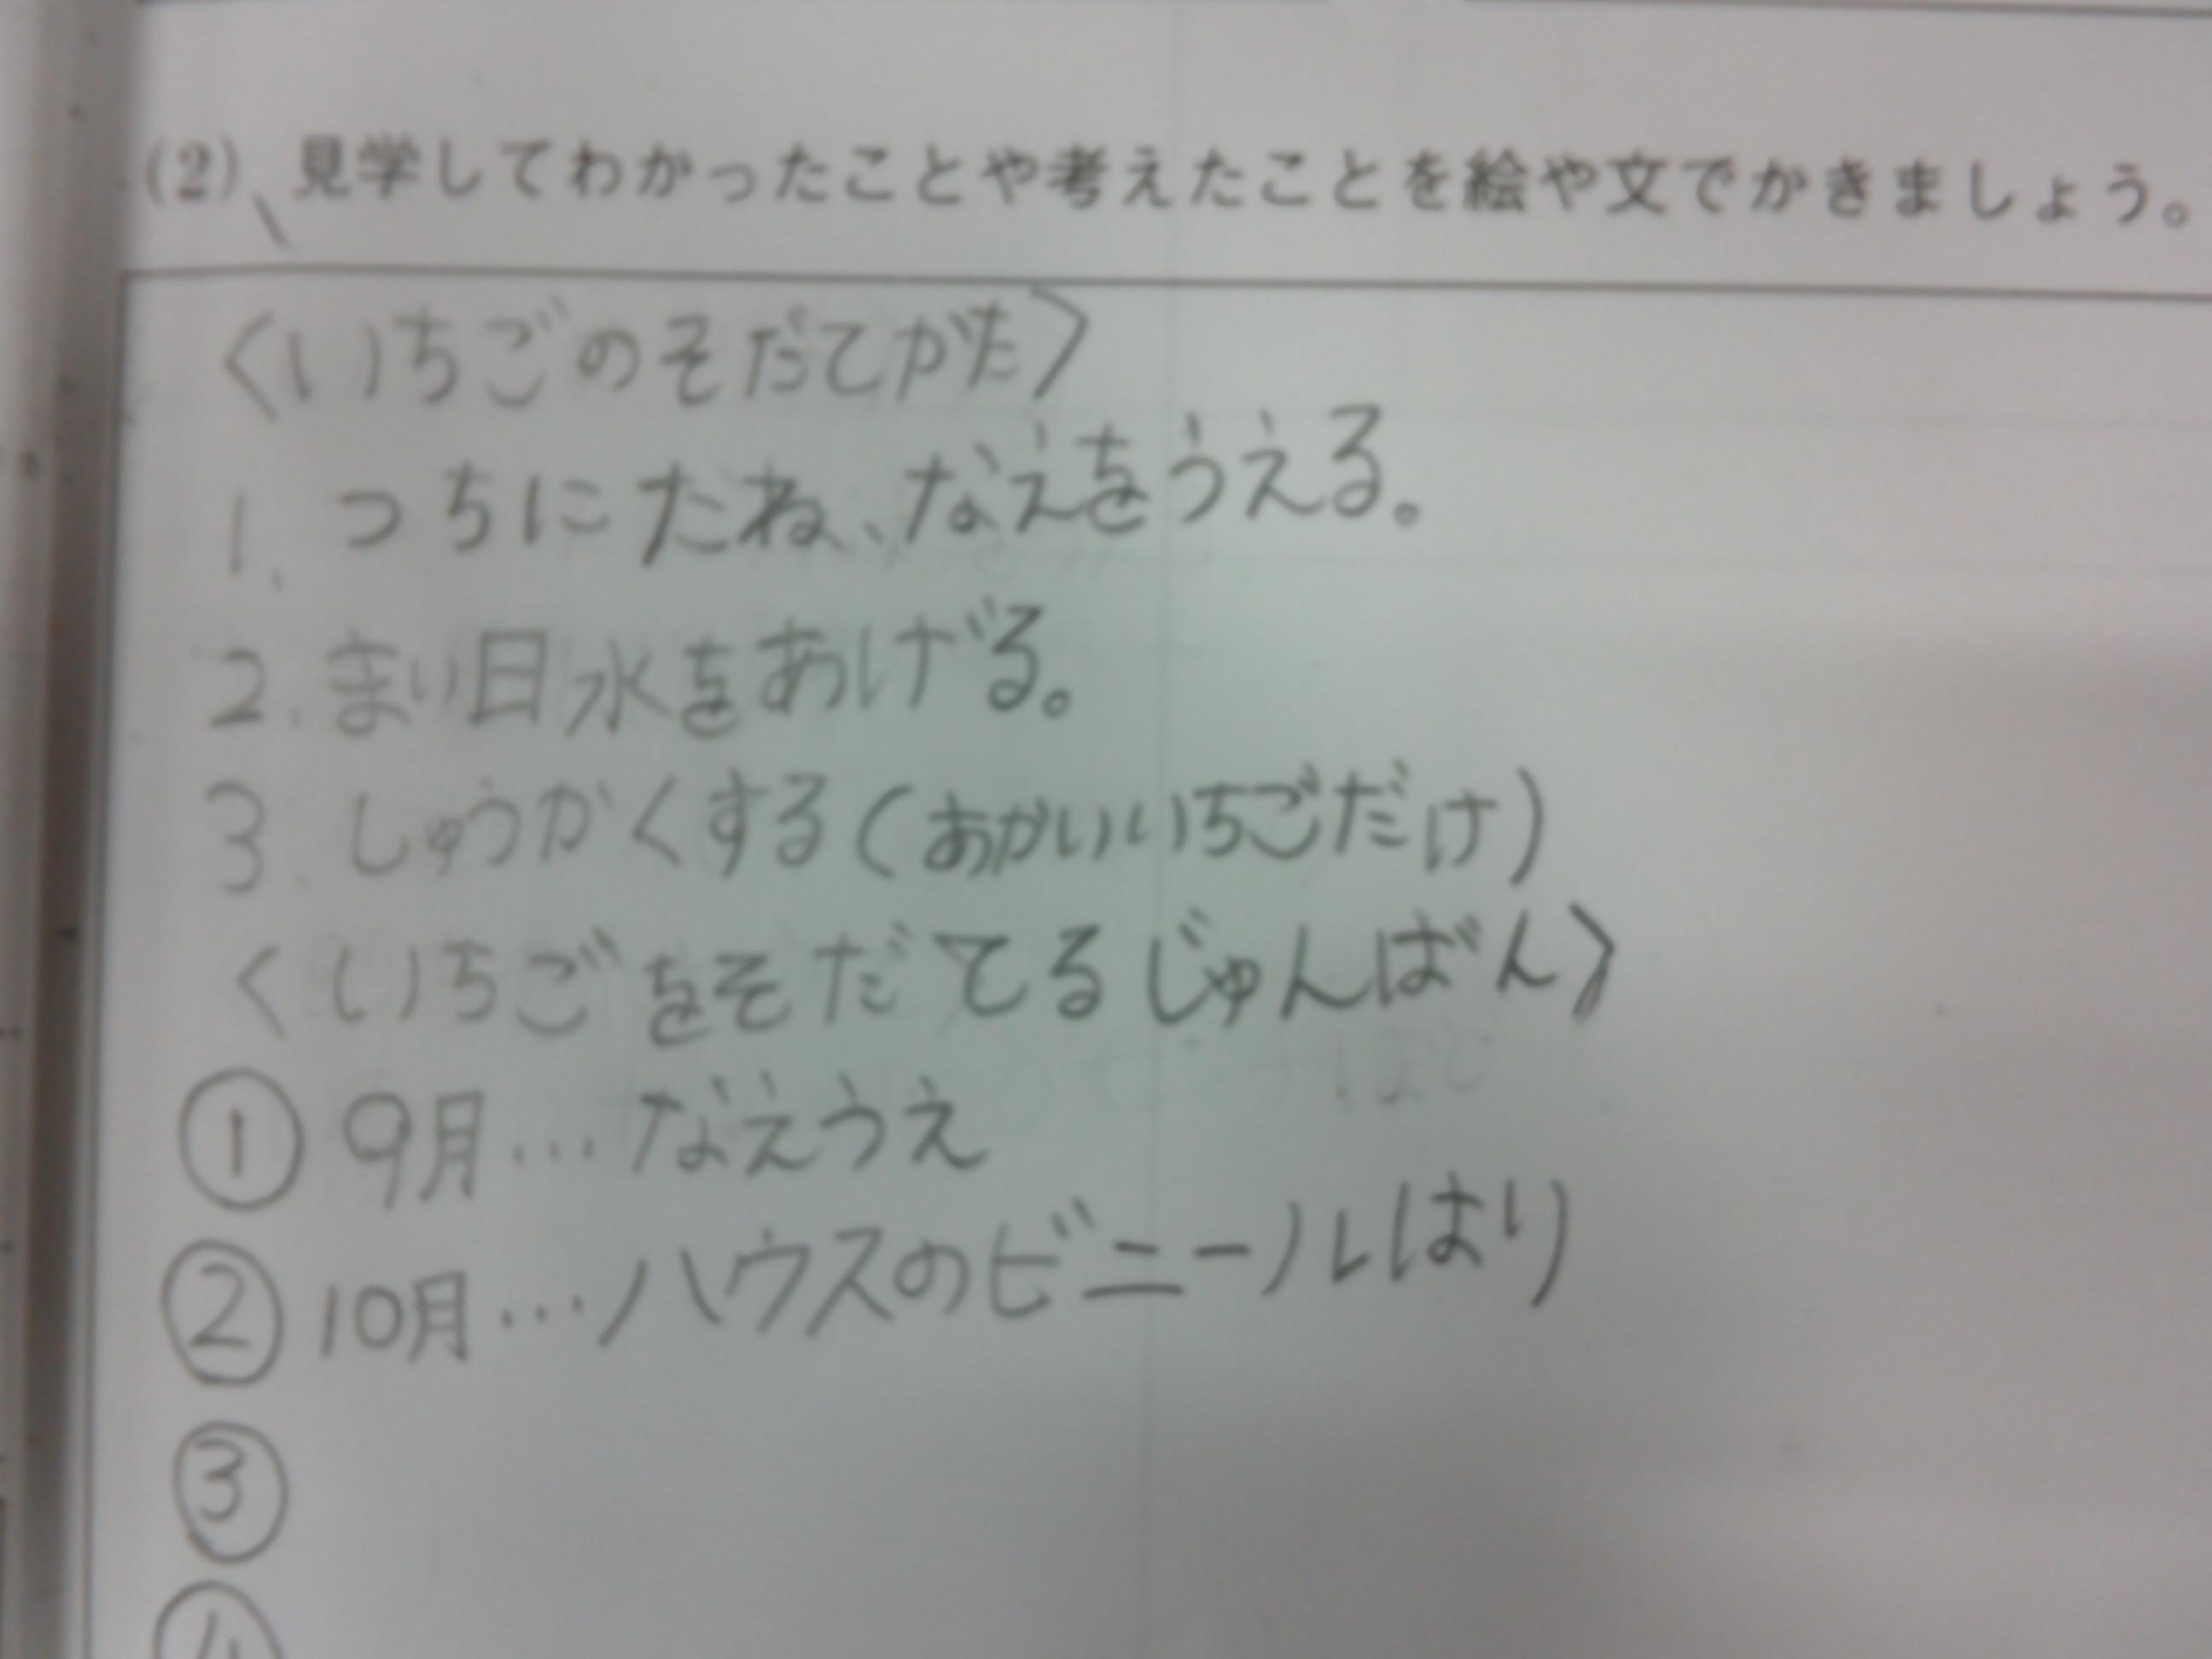 (2) 見学してわかったことや考えたことを絵や文でかきましょう。
〈いちごのそだてがた〉
1. つちにたね、なえをうえる。
2. まい日水をあげる。
3. しゅうかくする(あかいいちごだけ)
〈いちごをそだてるじゅんばん〉
① 9月…なえうえ
② 10月…ハウスのビニールはり
③
④